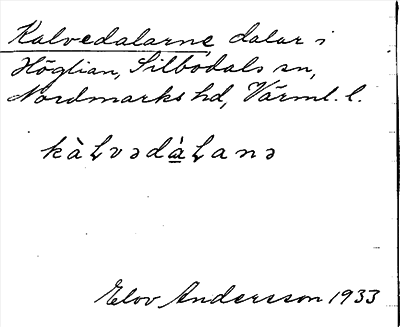 Kalvedalarne, dalar i
Höglian, Silbodals sn,
Nordmarks hd, Värml. l.
kàLvədàLanə
Elov Andersson 1933